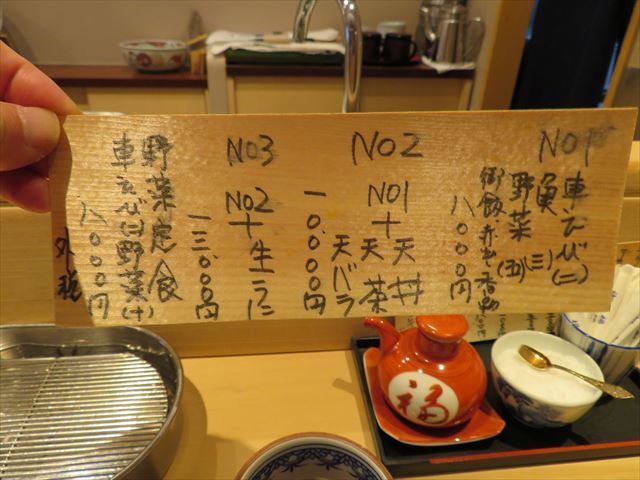 NO1
車えび(二)
魚(三)
野菜(五)
御飯 赤出 香物
八〇〇〇円
NO2
NO1
+
天丼
天茶
天バラ
一〇.〇〇〇円
NO3
NO2
+
生うに
一三.〇〇〇円
野菜定食
車えび(二)野菜(十)
八〇〇〇円
外税
福